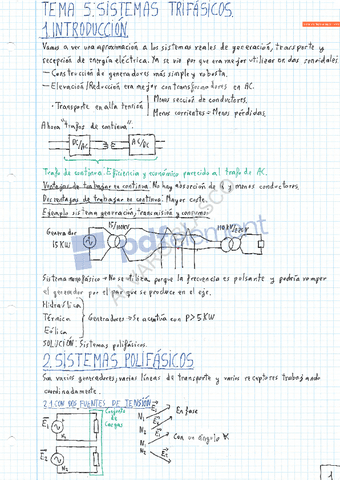 TEMA 5: SISTEMAS TRIFÁSICOS.
1. INTRODUCCIÓN
Vamos a ver una aproximación a los sistemas reales de generación, transporte y
recepción de energía eléctrica. Ya se vio por que era mejor utilizar ondas senoidales
- Construcción de generadores más simple y robusta.
- Elevación/Reducción era mejor con transformadores en AC.
· Transporte en alta tensión
Menos sección de conductores.
Menos corrientes = Menos pérdidas.
Ahora "trafos de continua".
DC/AC
AC/DC
Trafo de continua: Eficiencia y económico parecido al trafo de AC.
Ventajas de trabajar en continua: No hay absorción de Q y menos conductores.
Desventajas de trabajar en continua: Mayor coste.
Ejemplo sistema generación, transmisión y consumo:
Generador
15 KW
pdfelement
Sistema monofásico → No se utiliza porque la frecuencia es pulsante y podría romper
el generador por el par que se produce en el eje.
Hidráulica
Térmica
Eólica
Generadores → Se acentúa con P > 5 KW
SOLUCIÓN: Sistemas polifásicos.
2. SISTEMAS POLIFÁSICOS
Son varios generadores, varias líneas de transporte y varios receptores trabajando
coordinadamente.
2.1 CON DOS FUENTES DE TENSIÓN
Conjunto de Cargas
E1
N1
E2
N2
N1 E1
N2 E2
En fase
N1 E1
N2 E2
Con un ángulo
1